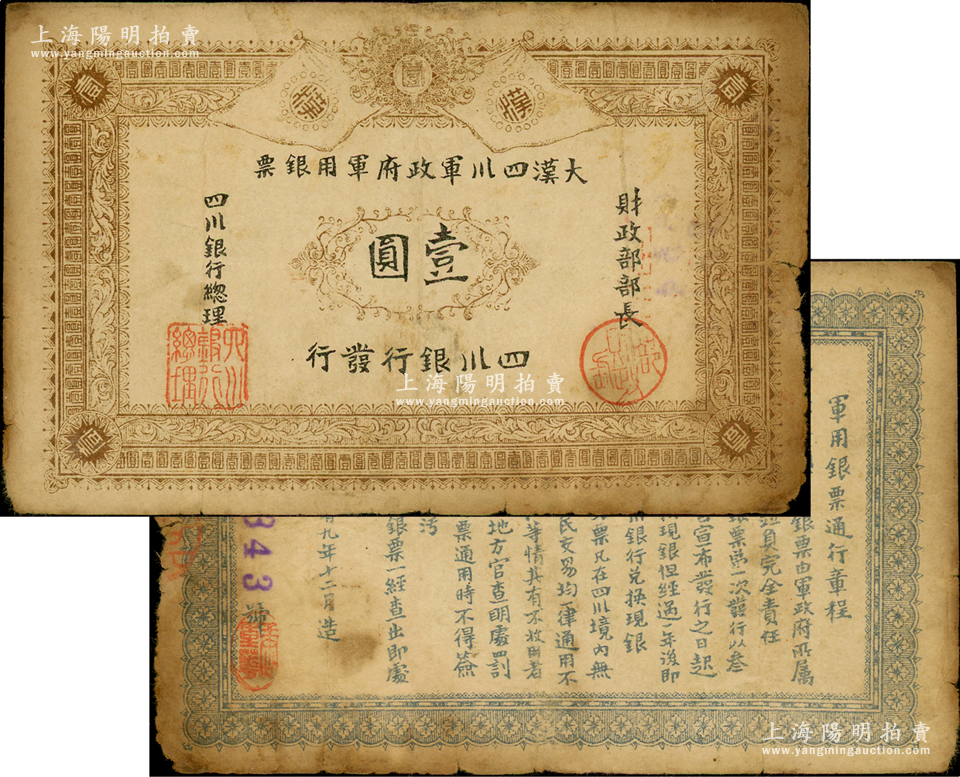 上海陽明拍賣
www.yangmingauction.com
壹
壹
壹
漢
漢
大漢四川軍政府軍用銀票
財政部部長
壹圓
四川銀行總理
四川銀行發行
四川銀行總理
上海陽明拍賣
www.yangmingauction.com
軍用銀票通行章程
銀票由軍政府所属
負完全責任
銀票第一次發行以叁
宣布發行之日起
現銀但經過一年後即
銀行兑换現銀
票凡在四川境內無
民交易均一律通用不
等情其有不收用者
地方官查明處罰
票通用時不得簽
污
銀票一經查出即處
九年十二月造
343
號
上海陽明拍賣
www.yangmingauction.com